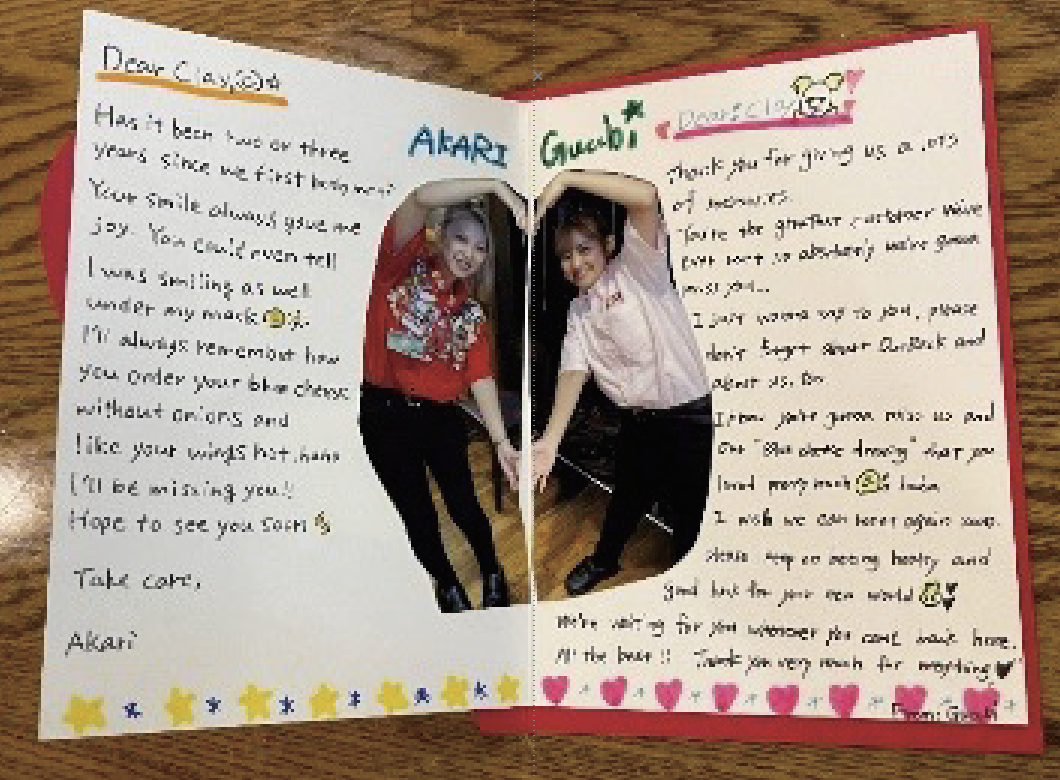 Dear Clay
Has it been two or three
years since we first met?
Your smile always gave me
joy. You could even tell
I was smiling as well
under my mask
I'll always remember how
you order your blue cheese
without onions and
like your wings hot. haha
I'll be missing you!!
Hope to see you soon
Take care,
Akari
AKARI
Guubi
Dear. Clay
Thank you for giving us a lots
of memories.
You're the greatest customer we've
ever so absolutely we're gonna
miss you..
I just wanna say to you, please
don't forget about OutBack and
about us. too
I know you're gonna miss us and
our "Blue cheese dressing" that you
loved very much haha
I wish we can meet again soon.
Please keep on being healthy and
good luck for your new world
We're waiting for you whenever you come back here.
All the best!! Thank you very much for everything
From: Guubi